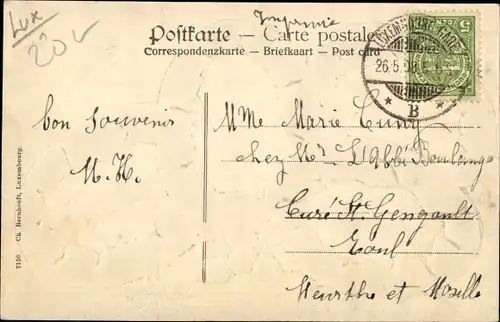 Lux
Imprimé
Postkarte — Carte postale
Correspondenzkarte — Briefkaart — Post card
LUXEMBURG-GARE
26.5.08
B
5
Bon Souvenir
M. H.
Mme Marie Cuny
chez Mr L'abbé Boulanger
Curé St. Gengault
Toul
Meurthe et Moselle
7156 Ch. Bernhoeft, Luxembourg.